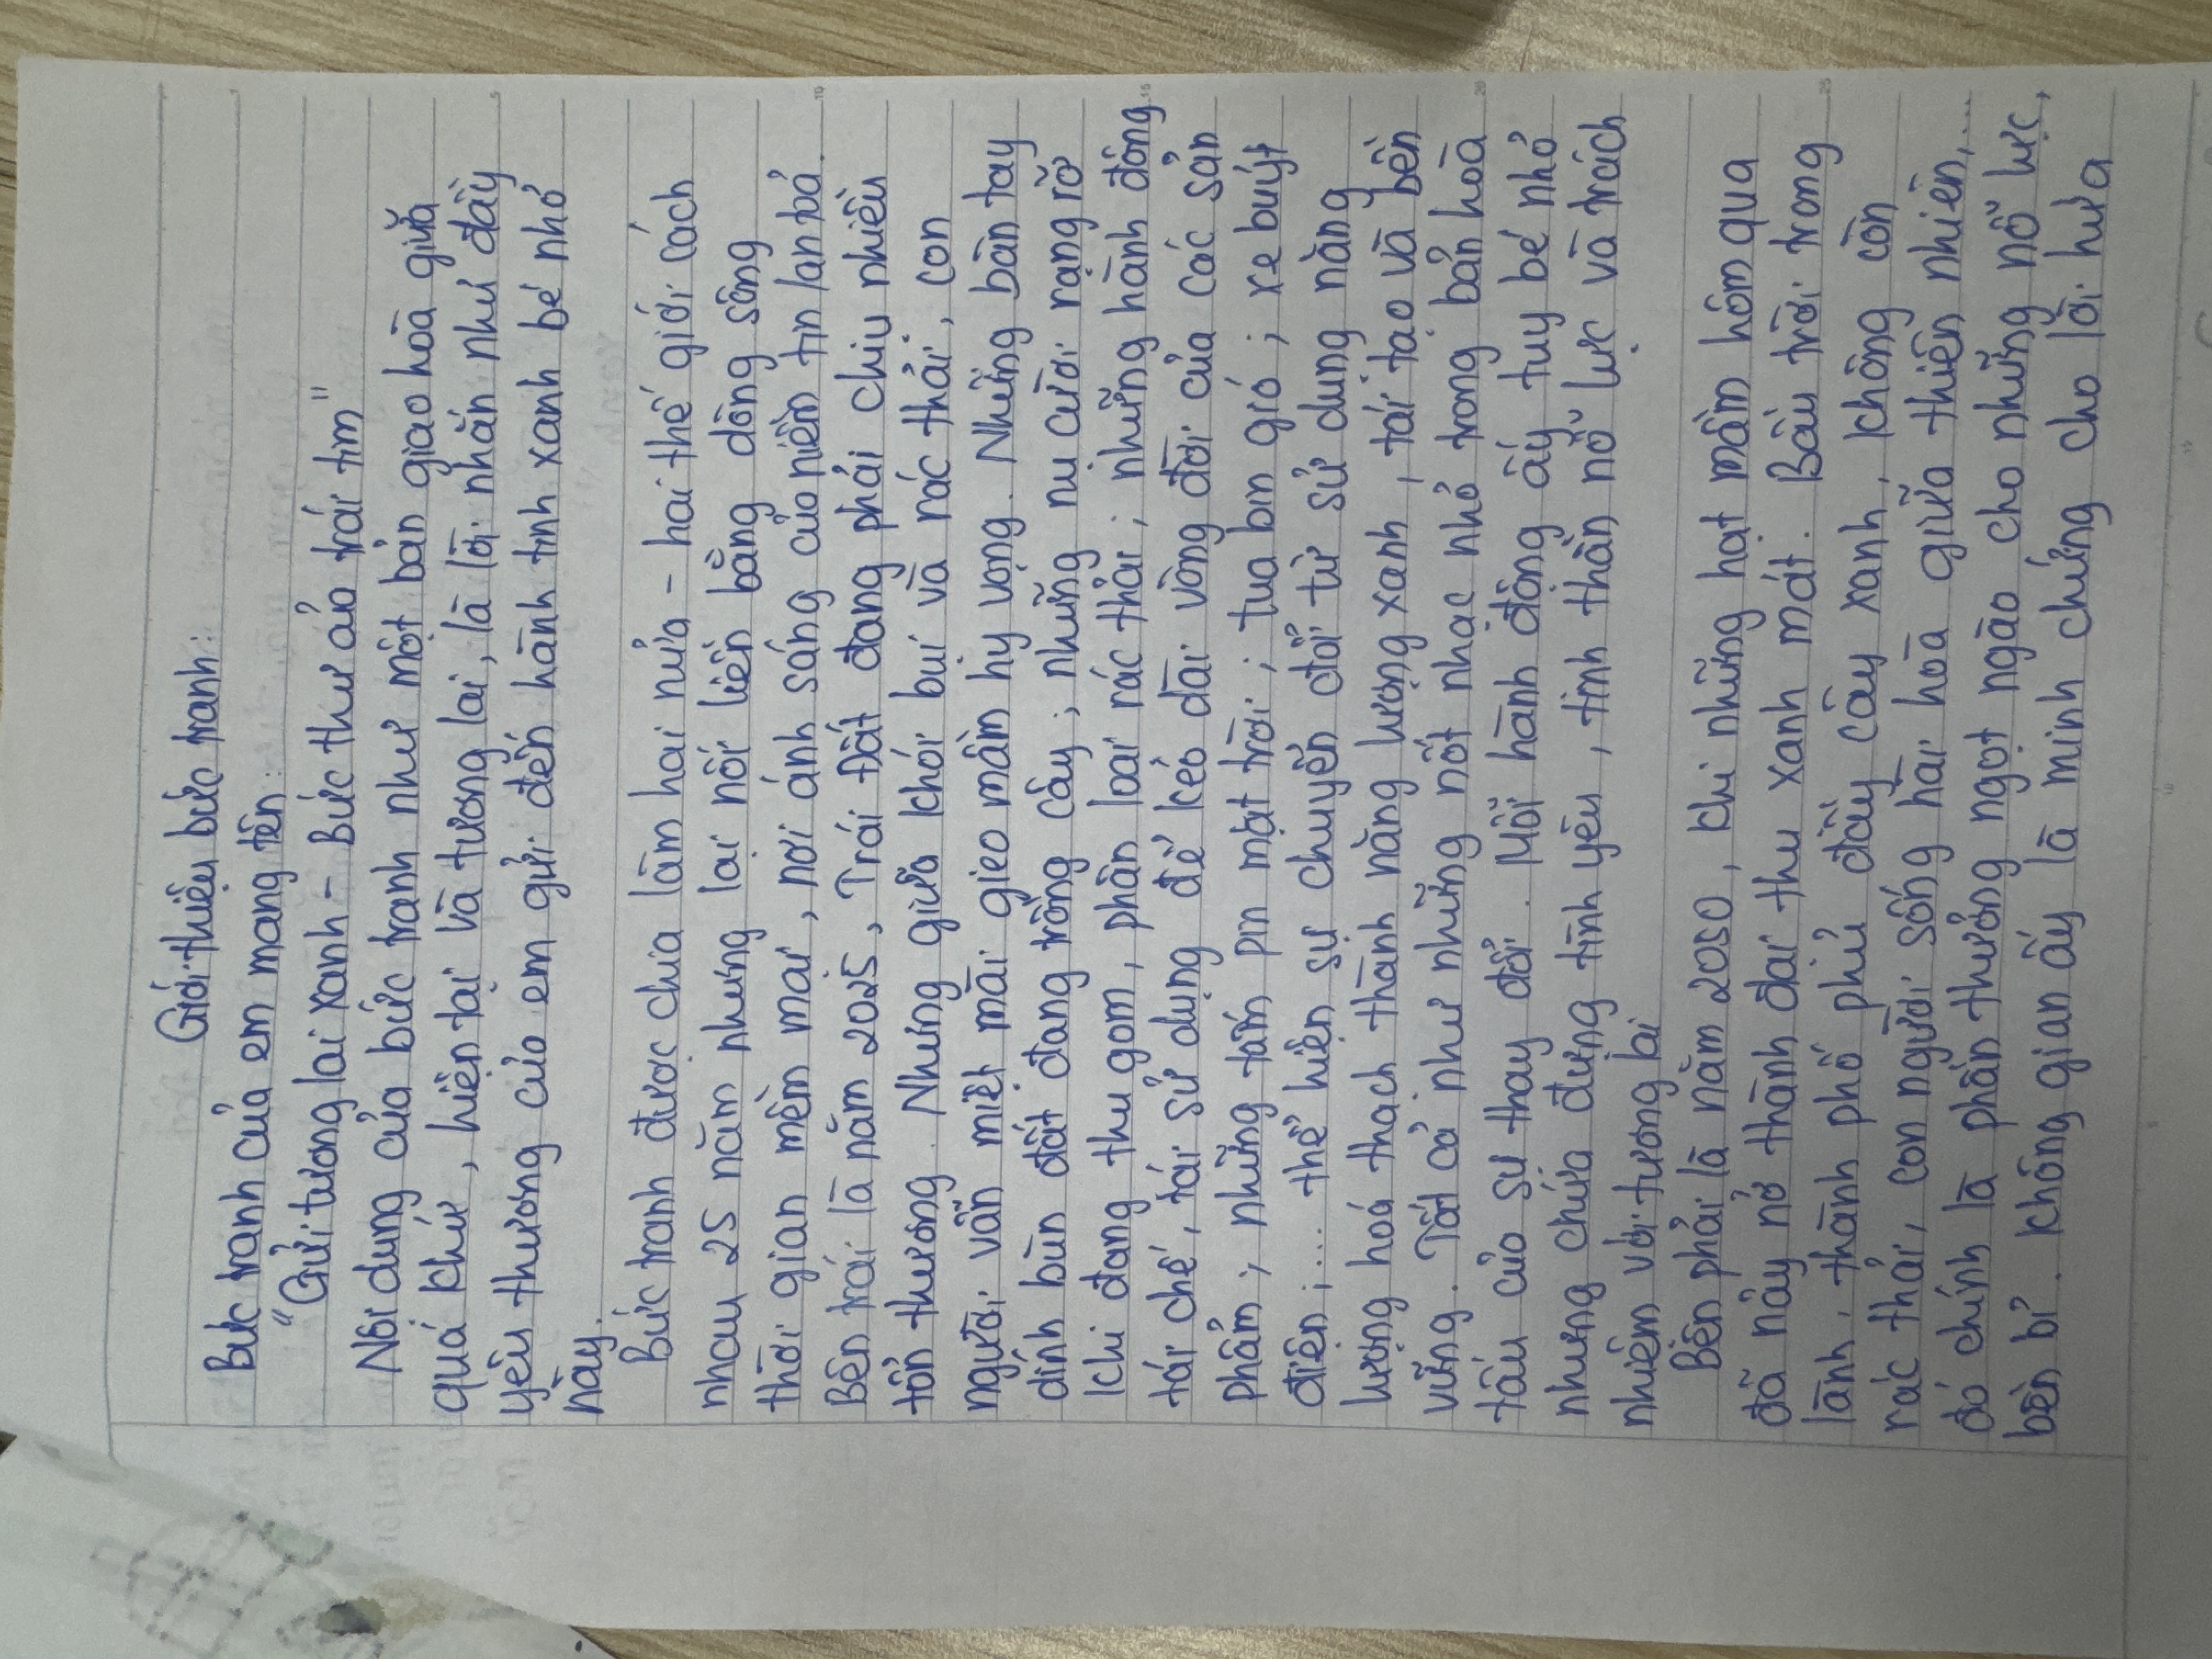 Giới thiệu bức tranh:
Bức tranh của em mang tên:
"Gửi tương lai xanh - Bức thư của trái tim"
Nội dung của bức tranh như một bản giao hoà giữa
quá khứ, hiện tại và tương lai, là lời nhắn nhủ đầy
yêu thương của em gửi đến hành tinh xanh bé nhỏ
này.
Bức tranh được chia làm hai nửa - hai thế giới cách
nhau 25 năm nhưng lại nối liền bằng dòng sông
thời gian mềm mại, nơi ánh sáng của niềm tin lan toả.
Bên trái là năm 2025, Trái Đất đang phải chịu nhiều
tổn thương. Nhưng giữa khói bụi và rác thải, con
người vẫn miệt mài gieo mầm hy vọng. Những bàn tay
dính bùn đất đang trồng cây; những nụ cười rạng rỡ
khi đang thu gom, phân loại rác thải; những hành động
tái chế, tái sử dụng để kéo dài vòng đời của các sản
phẩm; những tấm pin mặt trời; tua bin gió; xe buýt
điện;... thể hiện sự chuyển đổi từ sử dụng năng
lượng hoá thạch thành năng lượng xanh, tái tạo và bền
vững. Tất cả như những nốt nhạc nhỏ trong bản hoà
tấu của sự thay đổi. Mỗi hành động ấy tuy bé nhỏ
nhưng chứa đựng tình yêu, tinh thần nỗ lực và trách
nhiệm với tương lai
Bên phải là năm 2050, khi những hạt mầm hôm qua
đã nảy nở thành đại thụ xanh mát. Bầu trời trong
lành, thành phố phủ đầy cây xanh, không còn
rác thải, con người sống hài hoà giữa thiên nhiên,...
đó chính là phần thưởng ngọt ngào cho những nỗ lực,
bền bỉ. Không gian ấy là minh chứng cho lời hứa